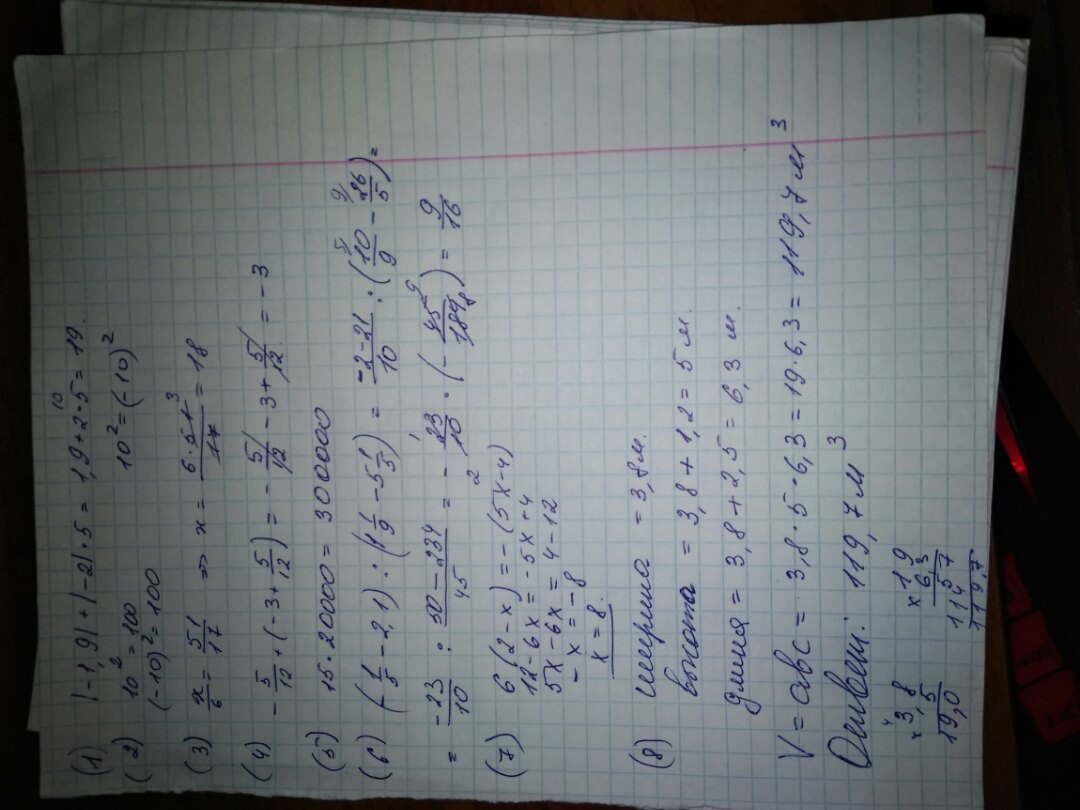 (1) |-1,9| + |-2| · 5 = 1,9 + 2 · 5 = 1,9 + 10 = 19.
(2) 10² = 100 10² = (-10)²
(-10)² = 100
(3) x/6 = 51/17 => x = 6·51/17 3 = 18
(4) - 5/12 + (-3 + 5/12) = - 5/12 - 3 + 5/12 = -3
(5) 15 · 20000 = 300000
(6) (- 1/5 - 2,1) : (1 1/9 - 5 1/5) = -2-21/10 : (10/9 5 - 26/5 9) =
= -23/10 : 50-234/45 = - 23/10 2 · (- 45 9/184 8) = 9/16
(7) 6(2-x) = -(5x-4)
12 - 6x = -5x + 4
5x - 6x = 4 - 12
-x = -8
x = 8.
(8) ширина = 3,8 м.
высота = 3,8 + 1,2 = 5 м.
длина = 3,8 + 2,5 = 6,3 м.
V = abc = 3,8 · 5 · 6,3 = 19 · 6,3 = 119,7 м³
Ответ: 119,7 м³
× 3,8
5
19,0
× 19
6,3
57
114
119,7